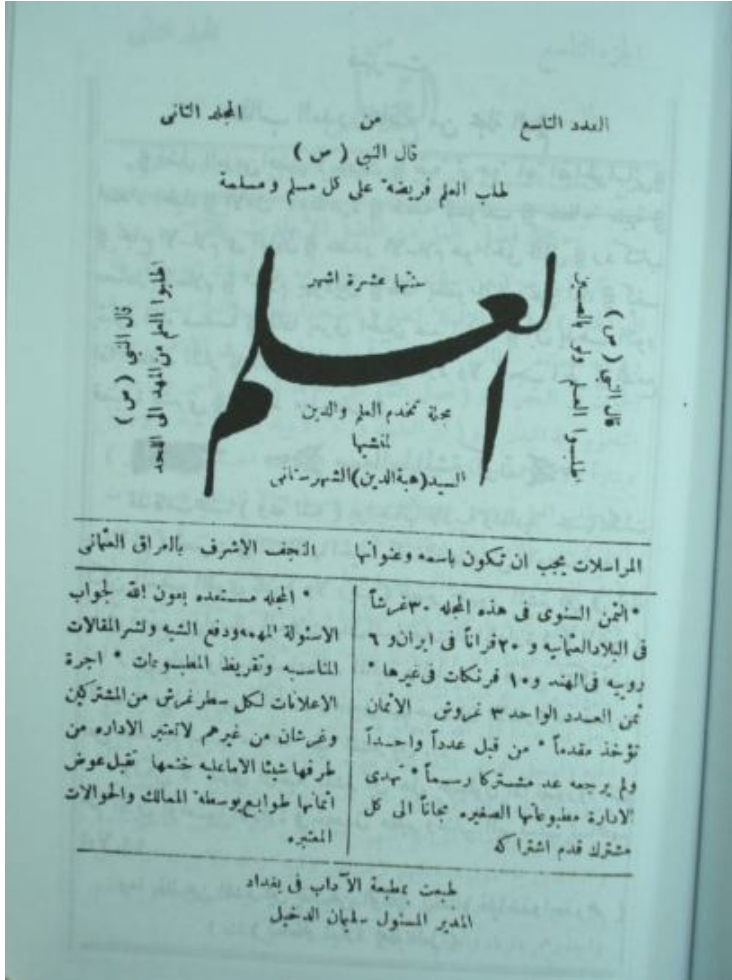 العدد التاسع من المجلد الثانى
قال النبي ( ص )
طلب العلم فريضة على كل مسلم ومسلمة
قال النبي ( ص )
اطلبوا العلم ولو بالصين
العلم
سنتها عشرة اشهر
مجلة تخدم العلم والدين
لمنشيها
السيد(هبةالدين)الشهرستانى
اطلبوا العلم من المهد الى اللحد
قال النبي ( ص )
المراسلات يجب ان تكون باسمه وعنوانها النجف الاشرف بالعراق العثمانى
*الثمن السنوى فى هذه المجله ٣٠غرشاً
فى البلادالعثمانيه و ٢٠قراناً فى ايران و ٦
روبيه فى الهند و١٠ فرنكات فى غيرها *
ثمن العدد الواحد ٣ غروش الاثمان
تؤخذ مقدماً * من قبل عدداً واحداً
ولم يرجعه عد مشتركا رسماً * تهدى
الادارة مطبوعاتها الصغيره مجاناً الى كل
مشترك قدم اشتراكه
* المجله مستعده بعون الله لجواب
الاسئولة المهمه ودفع الشبه ونشر المقالات
المناسبه وتقريظ المطبوعات * اجرة
الاعلانات لكل سطر غرش من المشتركين
وغرشان من غيرهم لاتعتبر الاداره من
طرفها شيئا الا ماعليه ختمها تقبل عوض
اثمانها طوابع بوسطة الممالك والحوالات
المعتبره
طبعت بمطبعة الآداب فى بغداد
المدير المسئول سليمان الدخيل